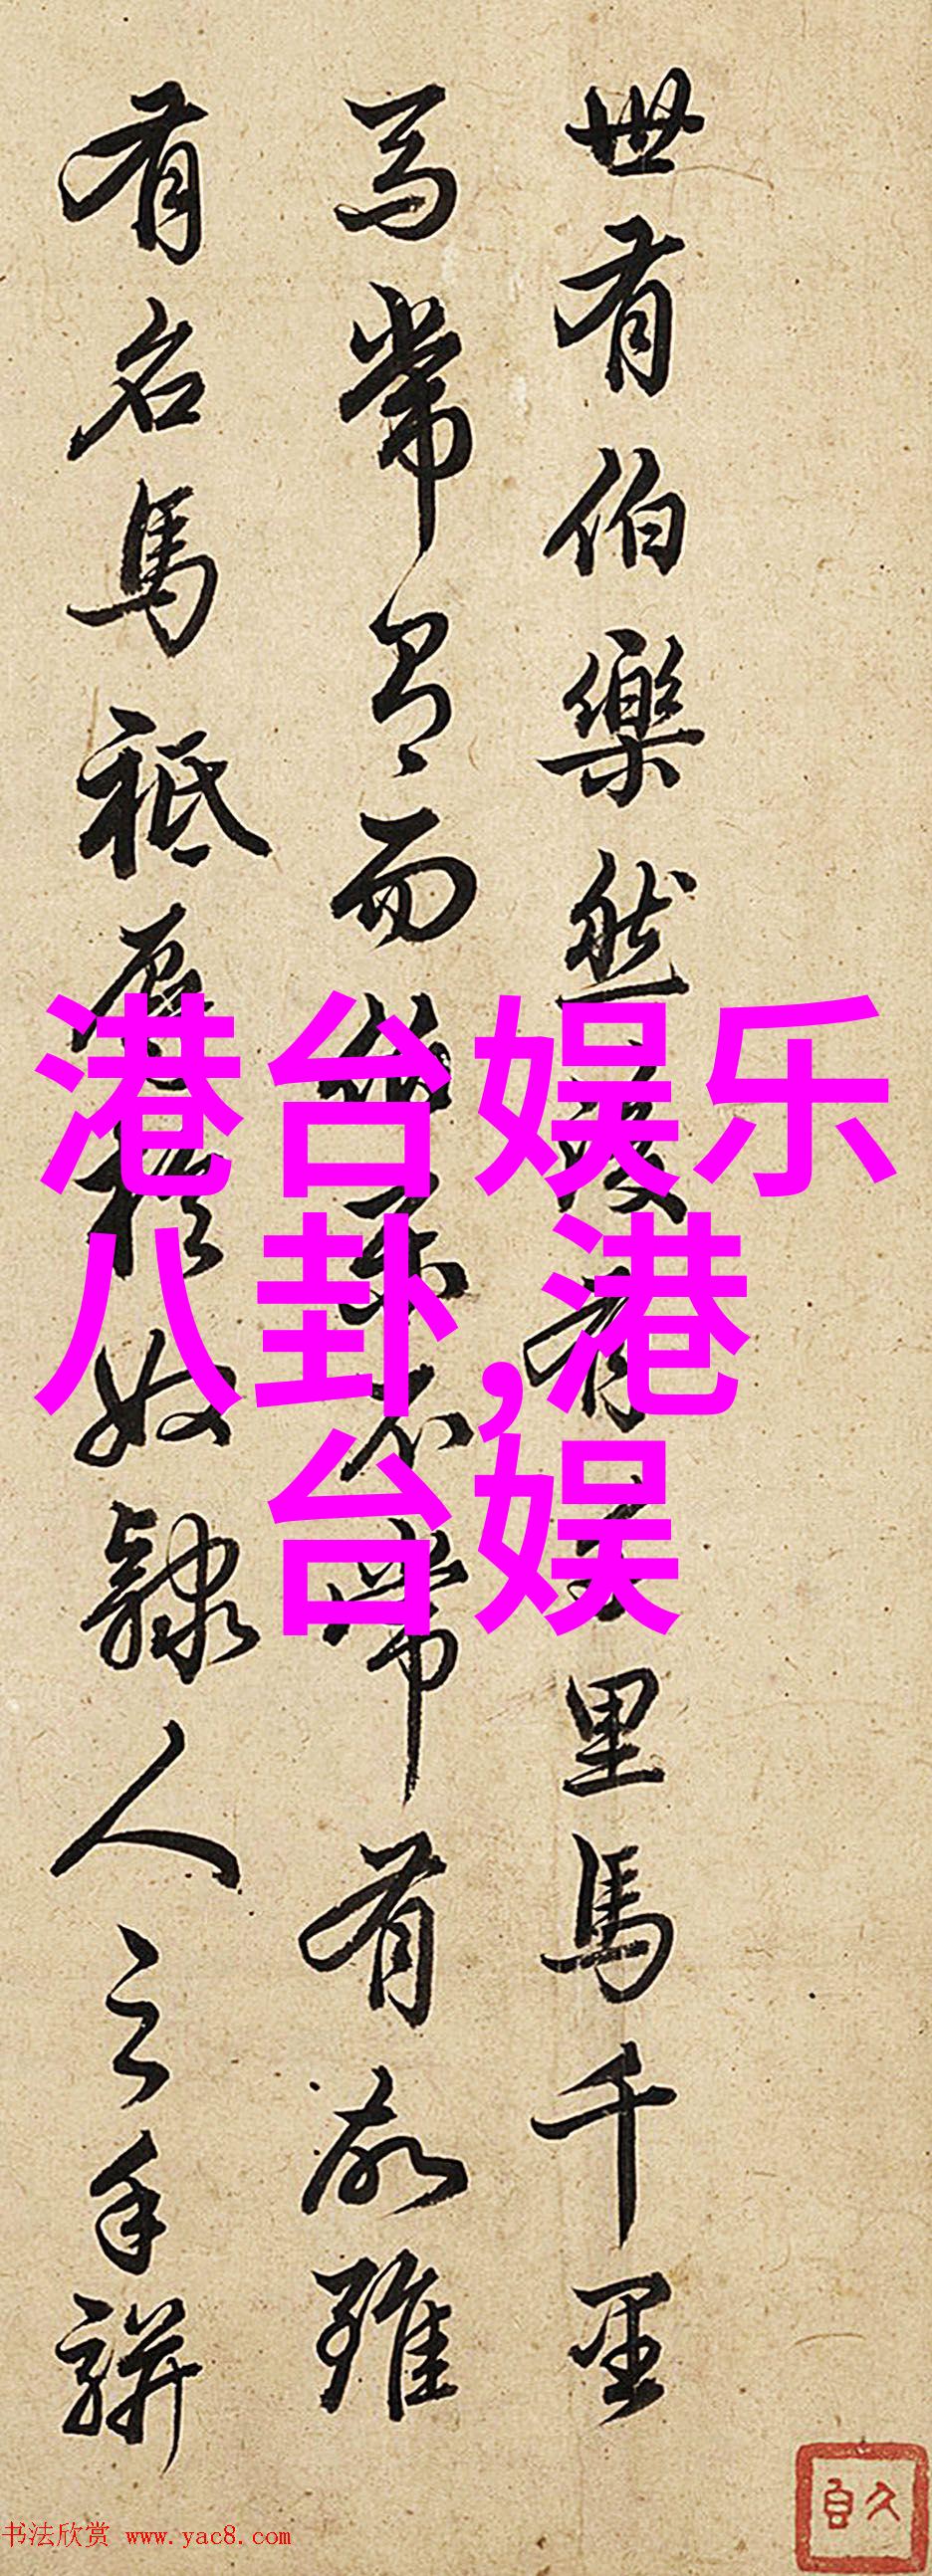 世有伯樂然後有千里馬千里
馬常有而伯樂不常有故雖
有名馬祗辱於奴隸人之手駢
港台娱乐
八卦,港
台娱
书法欣赏 www.yac8.com